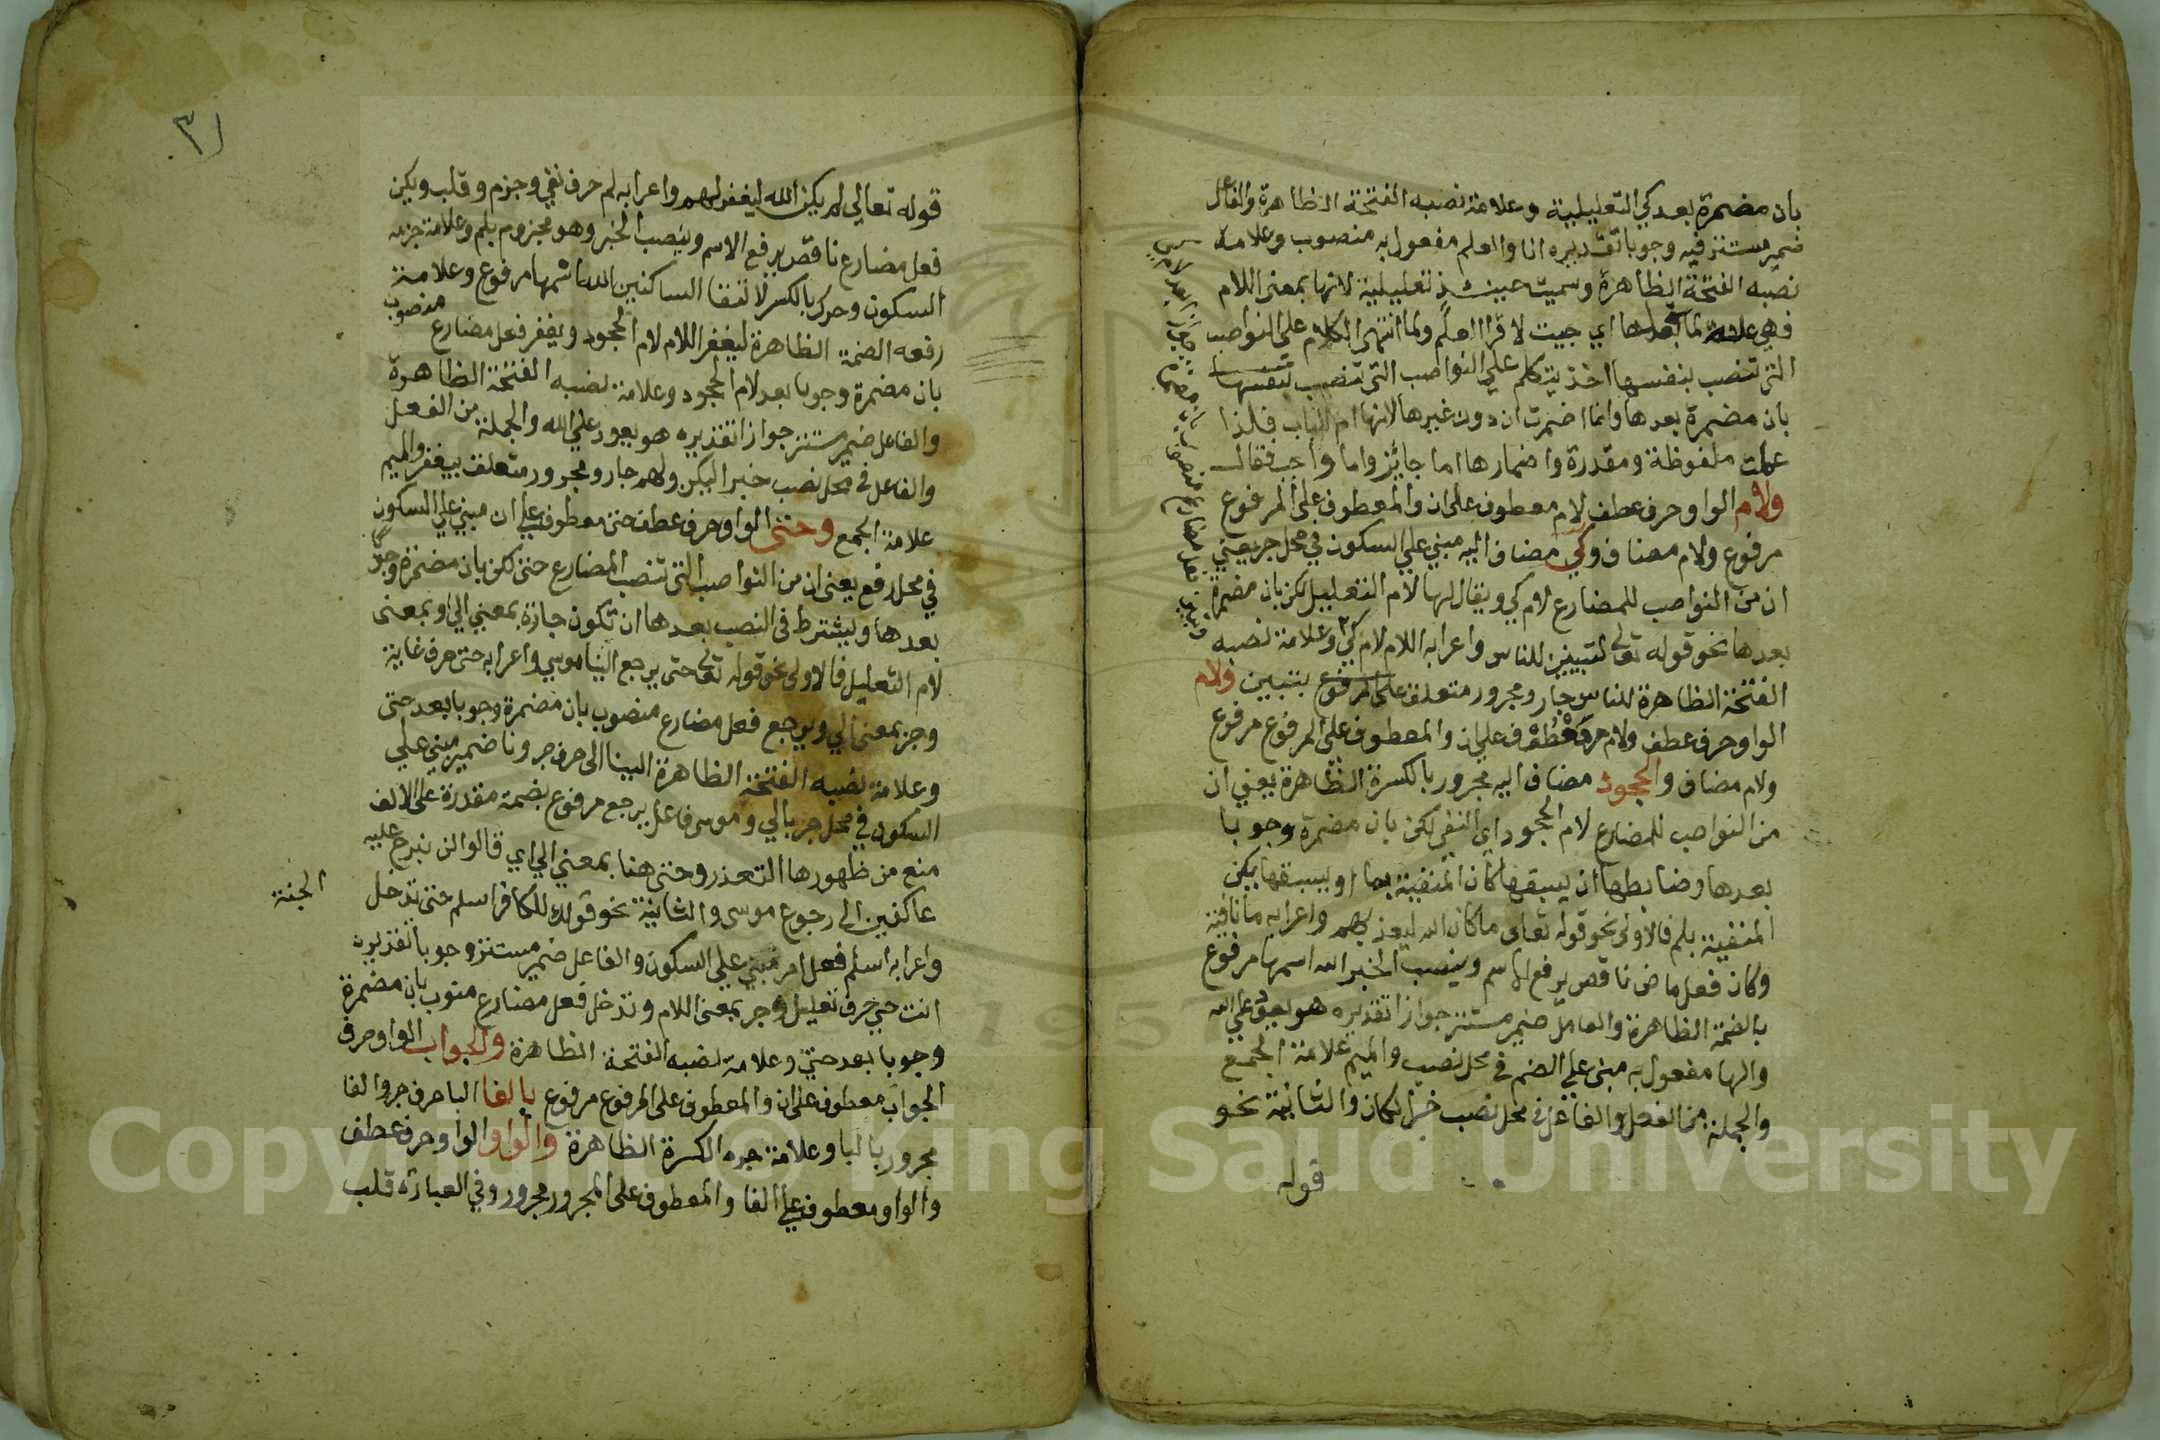 بان مضمرة بعد كي التعليلية وعلامة نصبه الفتحة الظاهرة والفاعل
ضمير مستتر فيه وجوبا تقديره انا والعلم مفعول به منصوب وعلامة
نصبه الفتحة الظاهرة وسميت حينئذ تعليلية لانها بمعنى اللام
فهي علة لما بعدها اي جيت لاقرا العلم ولما انتهى الكلام على النواصب
التي تنصب بنفسها اخذ يتكلم علي النواصب التي تنصب بنفسها
بان مضمرة بعدها وانما اضمرت ان دون غيرها لانها ام الباب فلذا
عملت ملفوظة ومقدرة واضمارها اما جائز واما واجب فقال
ولام الواو حرف عطف لام معطوف على ان والمعطوف على المرفوع
مرفوع ولام مضاف وكي مضاف اليه مبني علي السكون في محل جر يعني
ان من النواصب للمضارع لام كي ويقال لها لام التعليل لكن بان مضمرة
بعدها نحو قوله تعالى لتبين للناس واعرابه اللام لام كي وعلامة نصبه
وتبين فعل مضارع منصوب بان مضمرة
الفتحة الظاهرة للناس جار ومجرور متعلق على المرفوع بتبين ولام
الواو حرف عطف ولام حرف معطوف علي ان والمعطوف على المرفوع مرفوع
ولام مضاف والجحود مضاف اليه مجرور بالكسرة الظاهرة يعني ان
من النواصب للمضارع لام الجحود اي النفي لكن بان مضمرة وجوبا
بعدها وضابطها ان يسبقها كان المنفية بما او يسبقها يكن
المنفية بلم فالاولى نحو قوله تعالى ما كان الله ليعذبهم واعرابه ما نافية
وكان فعل ماض ناقص يرفع الاسم وينصب الخبر الله اسمها مرفوع
بالضمة الظاهرة والفاعل ضمير مستتر جوازا تقديره هو يعود علي الله
والها مفعول به مبني علي الضم في محل نصب والميم علامة الجمع
والجملة من الفعل والفاعل في محل نصب خبر لكان والثانية نحو
قوله
٣١
قوله تعالي لم يكن الله ليغفر لهم واعرابه لم حرف نفي وجزم وقلب ويكن
فعل مضارع ناقص يرفع الاسم وينصب الخبر وهو مجزوم بلم وعلامة جزمه
السكون وحرك بالكسر لالتقا الساكنين الله اسمها مرفوع وعلامة
رفعه الضمة الظاهرة ليغفر اللام لام الجحود ويغفر فعل مضارع منصوب
بان مضمرة وجوبا بعد لام الجحود وعلامة نصبه الفتحة الظاهرة
والفاعل ضمير مستتر جوازا تقديره هو يعود علي الله والجملة من الفعل
والفاعل في محل نصب خبر اليكن ولهم جار ومجرور متعلق بيغفر والميم
علامة الجمع وحتى الواو حرف عطف حتى معطوف علي ان مبني علي السكون
في محل رفع يعنى ان من النواصب التي تنصب المضارع حتى لكن بان مضمرة وجوبا
بعدها ويشترط في النصب بعدها ان تكون جارة بمعني الي او بمعنى
لام التعليل فالاولى نحو قوله تعالى حتى يرجع الينا موسي واعرابه حتى حرف غاية
وجر بمعنى الي ويرجع فعل مضارع منصوب بان مضمرة وجوبا بعد حتى
وعلامة نصبه الفتحة الظاهرة الينا الى حرف جر ونا ضمير مبني علي
السكون في محل جر بالي وموسى فاعل يرجع مرفوع بضمة مقدرة على الالف
منع من ظهورها التعذر وحتى هنا بمعني الي اي قالوا لن نبرح عليه
عاكفين الى رجوع موسى والثانية نحو قولك للكافر اسلم حتى تدخل
الجنة
واعرابه اسلم فعل امر مبني علي السكون والفاعل ضمير مستتر وجوبا تقديره
انت حتى حرف تعليل وجر بمعنى اللام وتدخل فعل مضارع منوب بان مضمرة
وجوبا بعد حتي وعلامة نصبه الفتحة الظاهرة والجواب الواو حرف
الجواب معطوف على ان والمعطوف على المرفوع مرفوع بالفا البا حرف جر والفا
مجرور بالبا وعلامة جره الكسرة الظاهرة والواو الواو حرف عطف
والواو معطوف علي الفا والمعطوف على المجرور مجرور وفي العبارة قلب
Copyright © King Saud University
1957